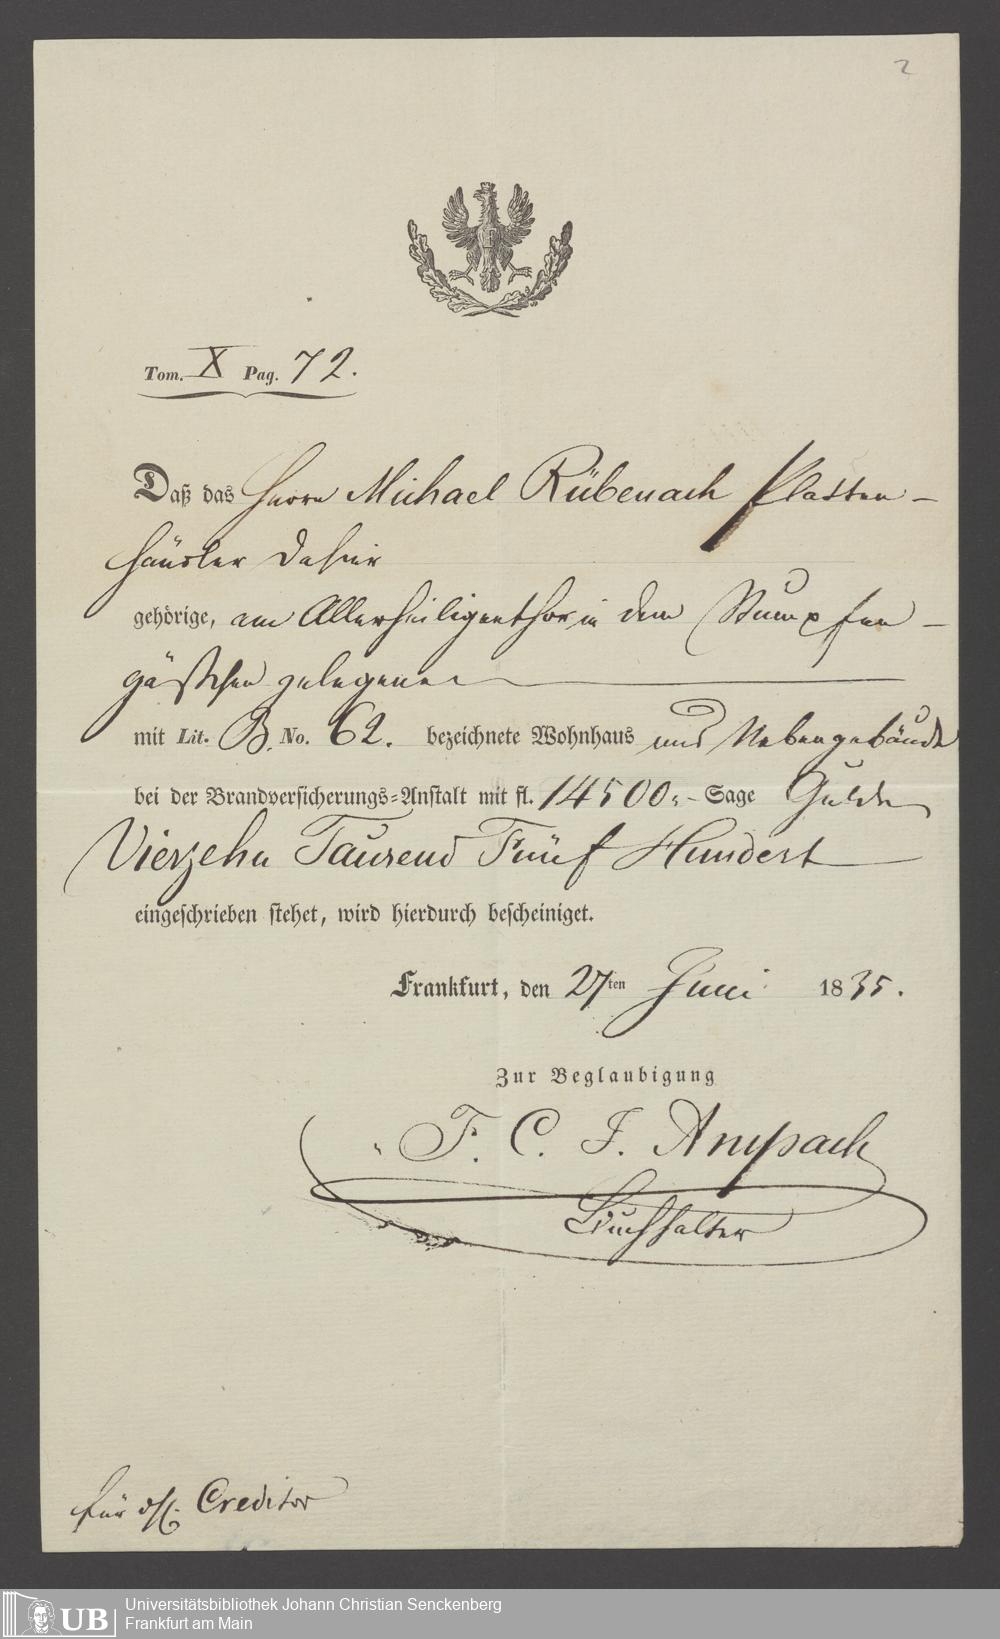 2
Tom. X Pag. 72.
Daß das Herrn Michael Rübenach Platten-
häusler dahier
gehörige, am Allerheiligenthor in dem Stumpfen-
gäßchen gelegene
mit Lit. B. No. 62. bezeichnete Wohnhaus und Nebengebäude
bei der Brandversicherungs=Anstalt mit fl. 14500.- Sage Gulden
Vierzehn Tausend Fünf Hundert
eingeschrieben stehet, wird hierdurch bescheiniget.
Frankfurt, den 27ten Juni 1835.
Zur Beglaubigung
F. C. J. Anspach
Buchhalter
für Creditor
UB Universitätsbibliothek Johann Christian Senckenberg
Frankfurt am Main